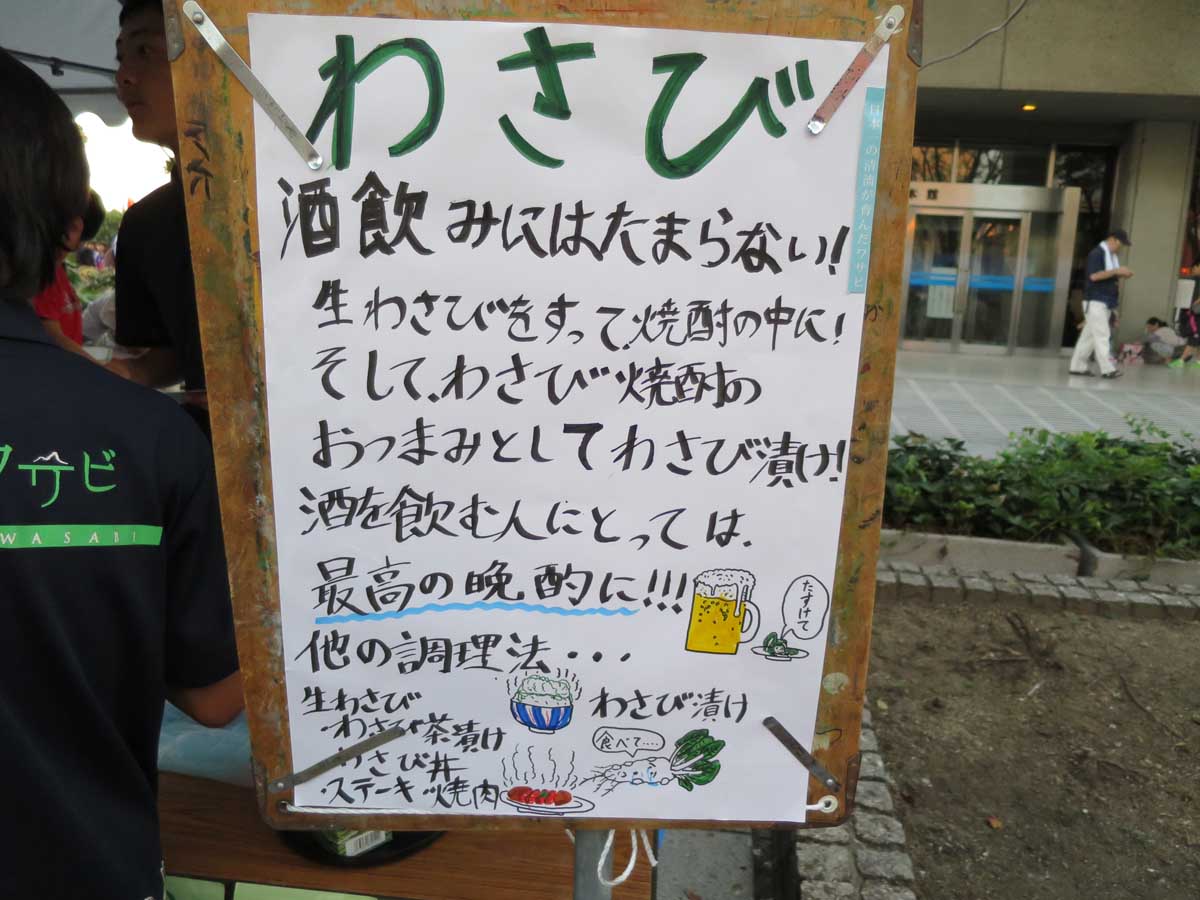 わさび
日本一の清流が育んだワサビ
酒飲みにはたまらない!
生わさびをすって、焼酎の中に!
そして、わさび焼酎の
おつまみとしてわさび漬け!
酒を飲む人にとっては、
最高の晩酌に!!!
たすけて
他の調理法・・・
生わさび
・わさび茶漬け
・わさび丼
・ステーキ・焼肉
わさび漬け
食べて....
サビ
WASABI
本館